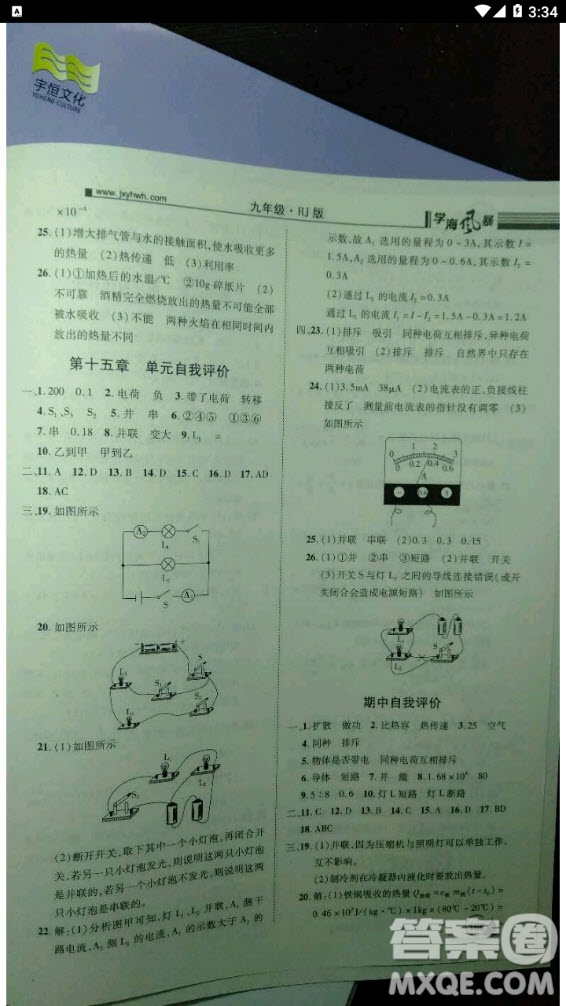 3:34
宇恒文化
YUHENG CULTURE
www.jxyhwh.com
九年级·RJ版
学海风暴
×10⁻⁴
25.(1)增大排气管与水的接触面积,使水吸收更多
的热量 (2)热传递 低 (3)利用率
26.(1)①加热后的水温/℃ ②10g碎纸片 (2)
不可靠 酒精完全燃烧放出的热量不可能全部
被水吸收 (3)不能 两种火焰在相同时间内
放出的热量不同
第十五章 单元自我评价
一、1.200 0.1 2.电荷 负 3.带了电荷 转移
4.S₁、S₃ S₂ 5.并 串 6.②④⑤ ①③⑥
7.串 0.18 8.并联 变大 9.L₁ =
=
10.乙到甲 甲到乙
二、11.A 12.D 13.B 14.D 15.C 16.D 17.AD
18.AC
三、19.如图所示
A₂ L₁ S₁
L₂
S A₁
20.如图所示
L₁ S S₁ S₂ L₂
21.(1)如图所示
L₁ L₂ S₁
(2)断开开关,取下其中一个小灯泡,再闭合开
关,若另一只小灯泡发光,则说明这两只小灯泡
是并联的,若另一个小灯泡不发光,则说明这两
只小灯泡是串联的。
22.解:(1)分析图甲可知,灯L₁、L₂并联,A₁测干
路电流,A₂测L₂的电流,A₁的示数大于A₂的
示数,故A₁选用的量程为0~3A,其示数I=
1.5A,A₂选用的量程为0~0.6A,其示数I₂=
0.3A
(2)通过L₂的电流I₂=0.3A
通过L₁的电流I₁=I-I₂=1.5A-0.3A=1.2A
四、23.(1)排斥 吸引 同种电荷互相排斥,异种电荷
互相吸引 (2)排斥 排斥 自然界中只存在
两种电荷
24.(1)3.5mA 38μA (2)电流表的正、负接线柱
接反了 测量前电流表的指针没有调零 (3)
如图所示
0 1 2 3
0 0.2 0.4 0.6
A
- 0.6 3
25.(1)并联 串联 (2)0.3 0.3 0.15
26.(1)①并 ②串 ③短路 (2)并联 开关
(3)开关S与灯L₂之间的导线连接错误(或开
关闭合会造成电源短路) 如图所示
L₁ L₂ S
期中自我评价
一、1.扩散 做功 2.比热容 热传递 3.25 空气
4.同种 排斥
5.物体是否带电 同种电荷互相排斥
6.导体 短路 7.并 能 8.1.68×10⁶ 80
9.5∶8 0.6 10.灯L短路 灯L断路
二、11.C 12.D 13.B 14.C 15.A 16.D 17.BD
18.ABC
三、19.(1)并联,因为压缩机与照明灯可以单独工作,
互不影响。
(2)制冷剂在冷凝器内液化时要放出热量。
20.解:(1)铁锅吸收的热量
0.46×10³J/(kg·℃)×1kg×(80℃-20℃)=
答案圈
MXQE.COM